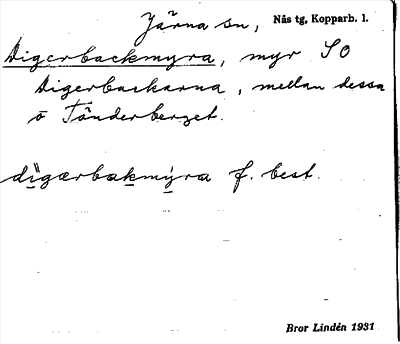 Järna sn, Nås tg, Kopparb. l.
Digerbackmyra, myr SO
Digerbackarna, mellan dessa
o Tänderberget.
dìgærbakmýra f. best.
Bror Lindén 1931